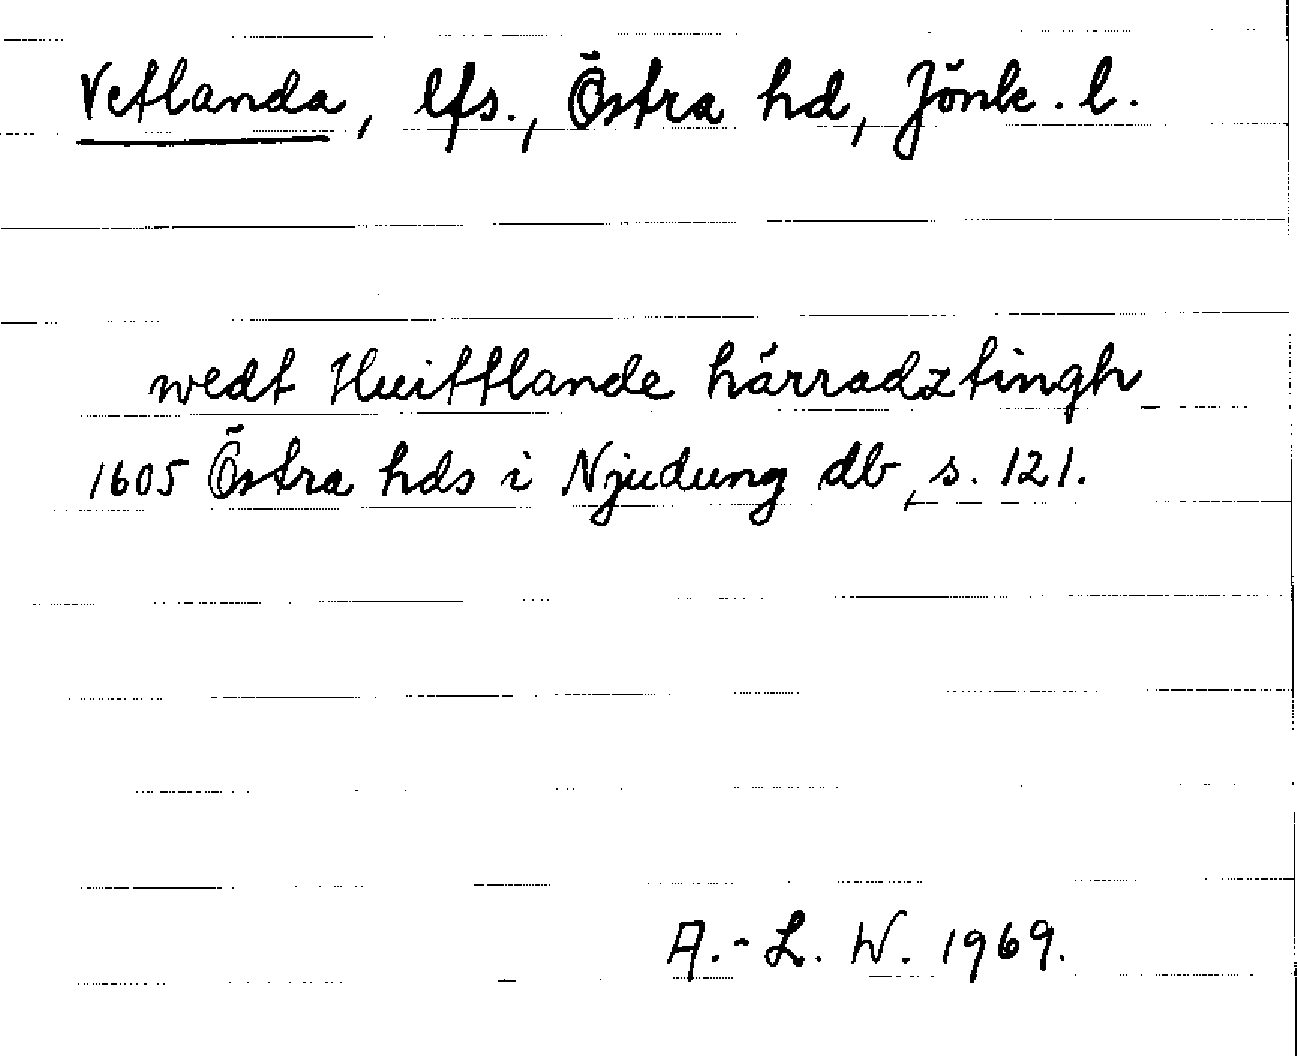 Vetlanda, lfs., Östra hd, Jönk. l.
wedt Huittlande härradztingh
1605 Östra hds i Njudung db, s. 121.
A.-L. W. 1969.